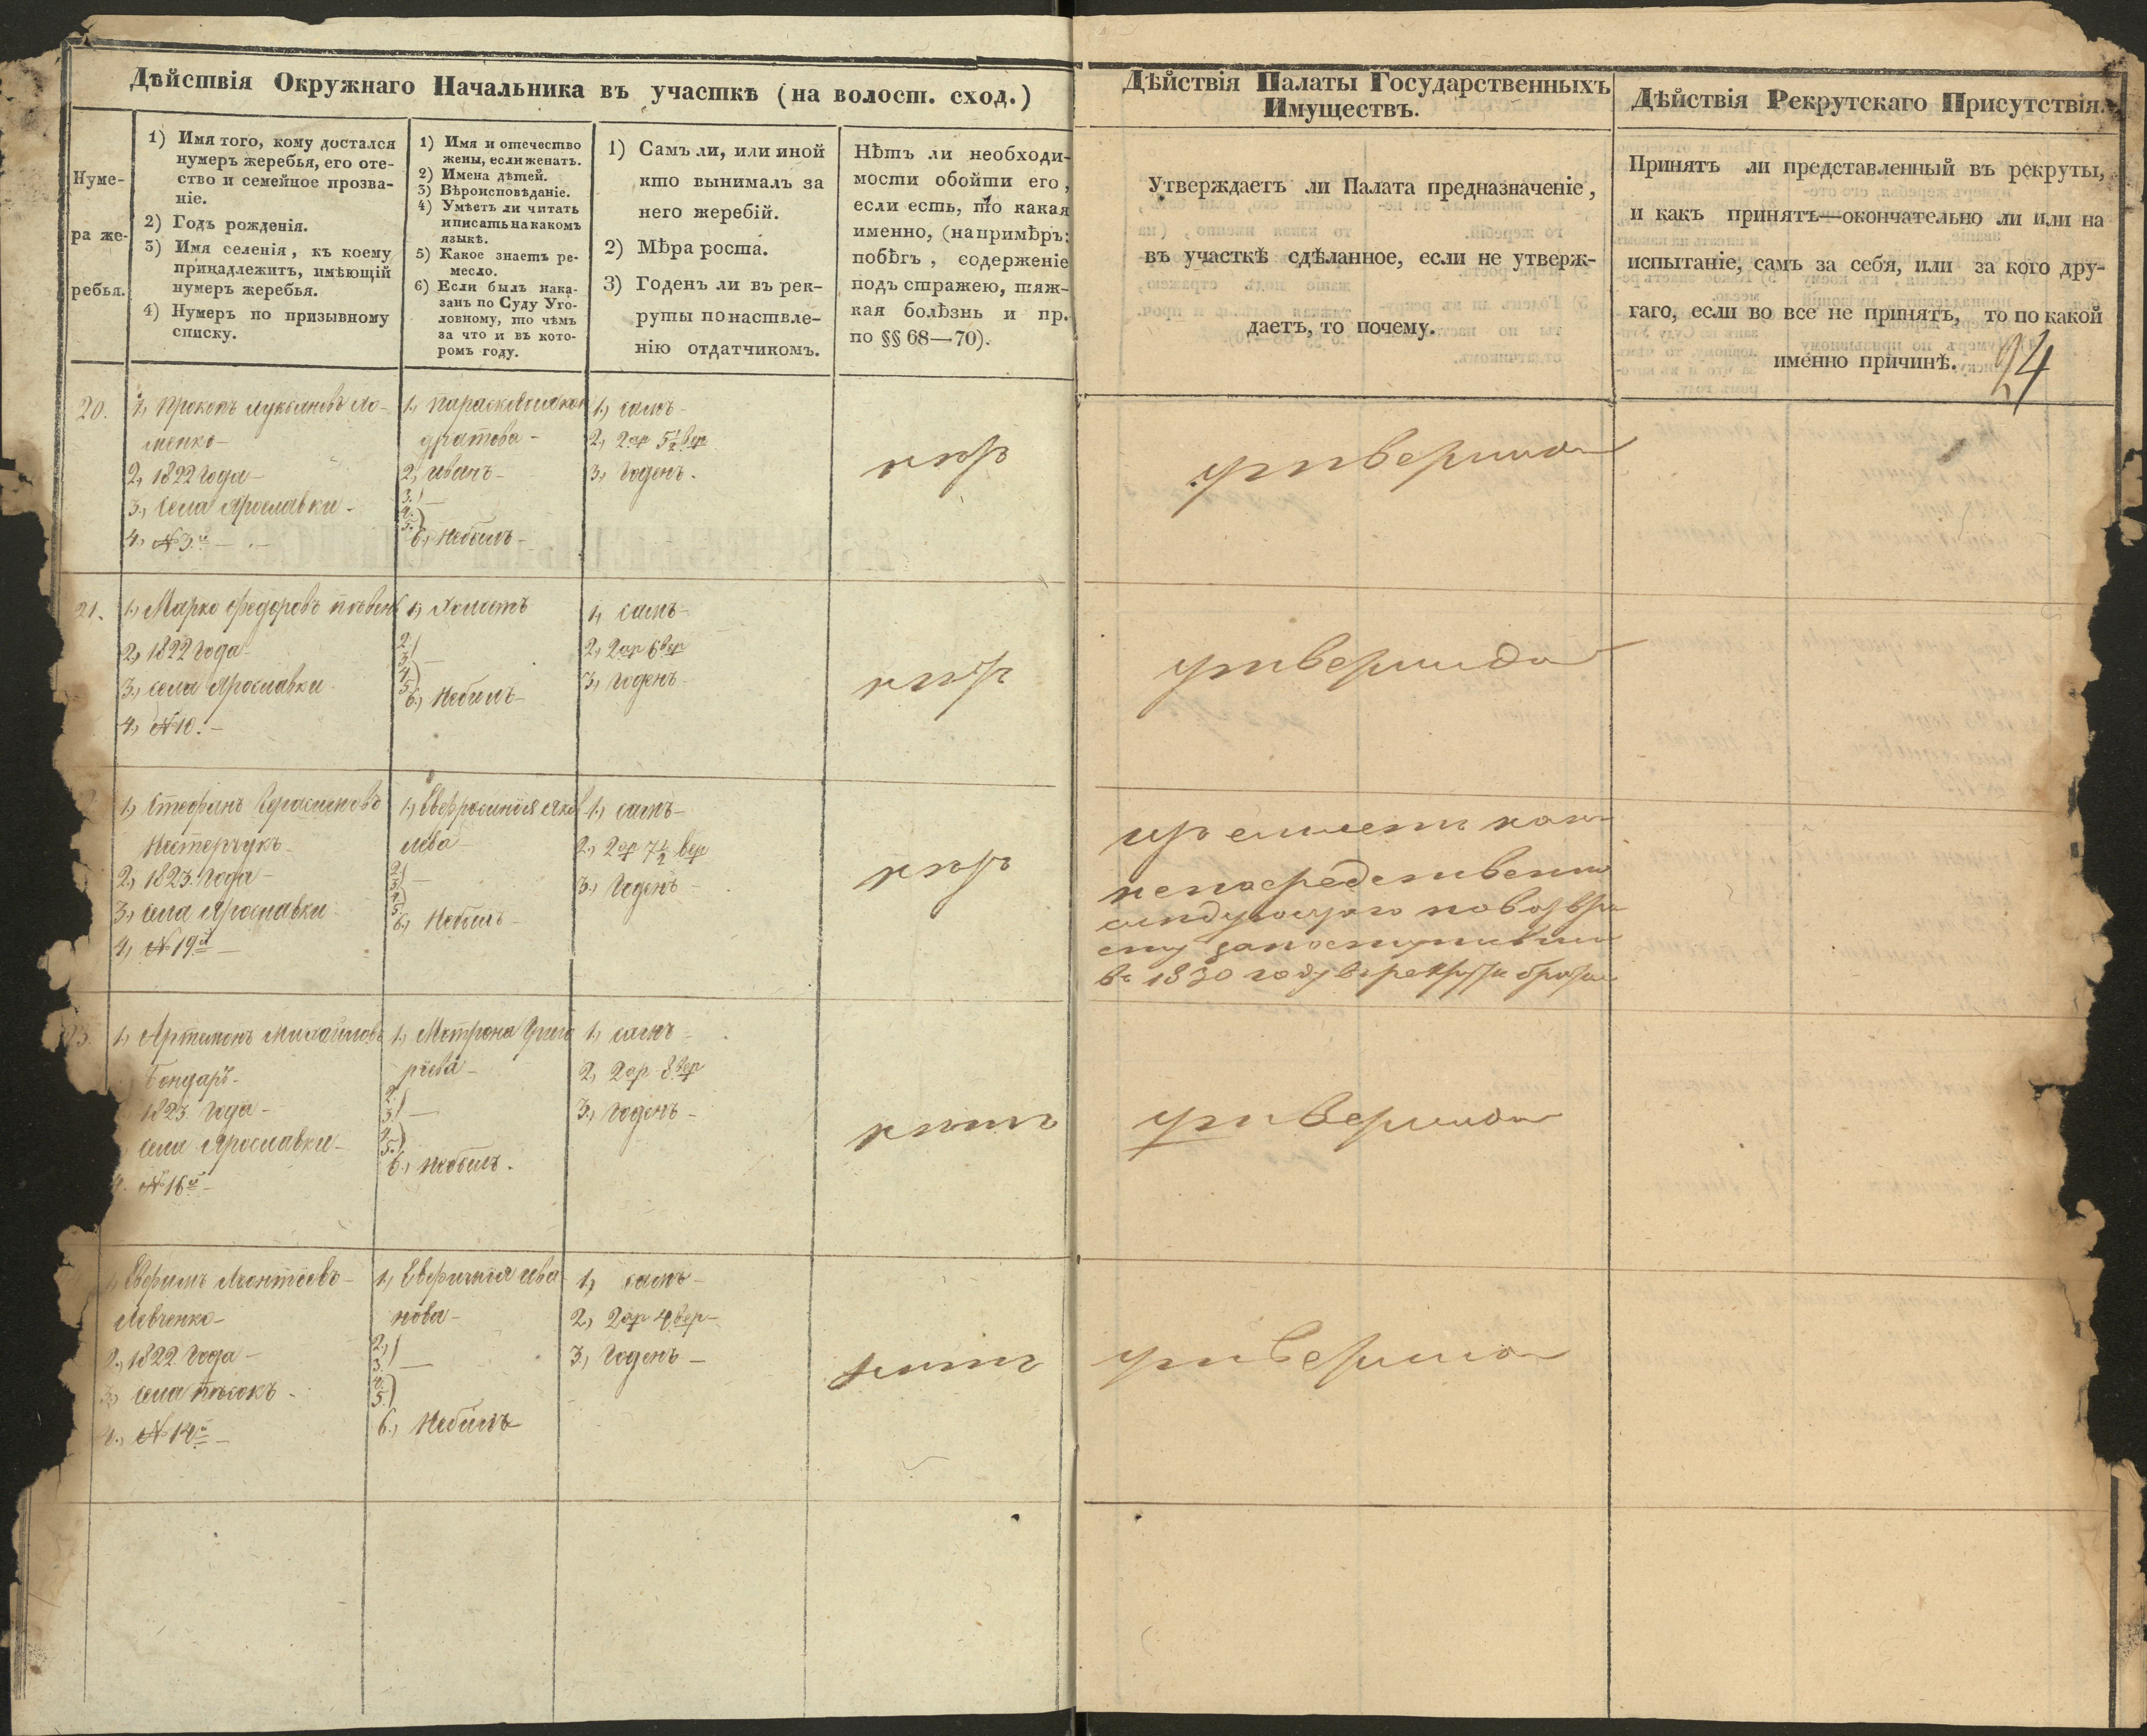 Дѣйствія Окружнаго Начальника въ участкѣ (на волост. сход.)
Нуме-
ра же-
ребья.
1) Имя того, кому достался
нумеръ жеребья, его оте-
ство и семейное прозва-
ніе.
2) Годъ рожденія.
3) Имя селенія, къ коему
принадлежитъ, имѣющій
нумеръ жеребья.
4) Нумеръ по призывному
списку.
1) Имя и отечество
жены, если женатъ.
2) Имена дѣтей.
3) Вѣроисповѣданіе.
4) Умѣетъ ли читать
и писать на какомъ
языкѣ.
5) Какое знаетъ ре-
месло.
6) Если былъ нака-
занъ по Суду Уго-
ловному, то чѣмъ
за что и въ кото-
ромъ году.
1) Самъ ли, или иной
кто вынималъ за
него жеребій.
2) Мѣра роста.
3) Годенъ ли въ рек-
руты по наствле-
нію отдатчикомъ.
Нѣтъ ли необходи-
мости обойти его,
если есть, то какая
именно, (напримѣръ:
побѣгъ, содержаніе
подъ стражею, тяж-
кая болѣзнь и пр.
по §§ 68—70).
Дѣйствія Палаты Государственныхъ
Имуществъ.
Утверждаетъ ли Палата предназначеніе,
въ участкѣ сдѣланное, если не утверж-
даетъ, то почему.
Дѣйствія Рекрутскаго Присутствія.
Принятъ ли представленный въ рекруты,
и какъ принятъ—окончательно ли или на
испытаніе, самъ за себя, или за кого дру-
гаго, если во все не принятъ, то по какой
именно причинѣ.
24
20.
1, Прокопъ Лукьяновъ Ло-
менко-
2, 1822 года-
3, Села Ярославки-
4, №3й-
1,
дратова-
2, Иванъ-
3.)
4.)
5.)
6., Небылъ-
1, самъ-
2, 2ар 5½вер
3, Годенъ.
нѣтъ
утвержда
21.
1, Марко Федоровъ
2, 1822 года-
3, села Ярославки
4, №10.-
1, Холостъ
2.)
3.)
4.)
5.)
6., Небылъ-
1, самъ-
2, 2ар 6вер
3, Годенъ-
нѣтъ
утвержда
1, Стефанъ Герасимовъ
Нестерчукъ-
2, 1823. года-
3, села Ярославки
4, №19й-
1, Евфросинія Яков
лева-
2.)
3.)
4.)
5.)
6., Небылъ-
1, самъ-
2, 2ар 7½ вер
3., Годенъ-
нѣтъ
непосредственно
въ 1830 году
1, Артемонъ Михайловъ
Бондаръ-
1823. года-
села Ярославки-
4. №16й-
1, Мотрона Григо
рѣева-
2.)
3.)
4.)
5.)
6., Небылъ.
1, самъ-
2, 2ар 8.вер
3., Годенъ-
нѣтъ
утвержда
1, Евфимъ Леонтіевъ-
Левченко-
2., 1822. года-
3, села Пѣсокъ-
4., №14й-
1, Ива
нова-
2.,)
3.)
4.)
5.)
6., Небылъ
1, самъ-
2, 2ар 4вер-
3, Годенъ-
нѣтъ
утвержда